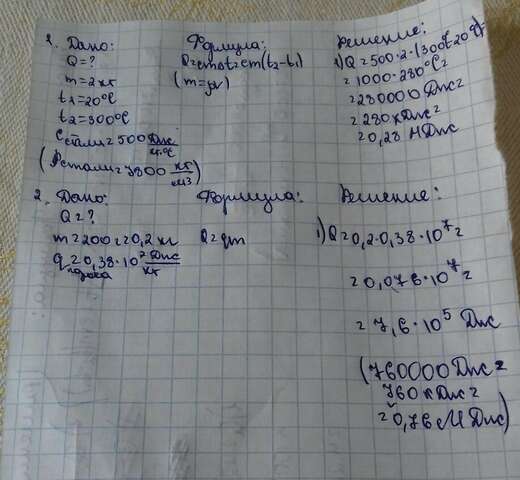 1. Дано:
Q = ?
m = 2 кг
t₁ = 20°C
t₂ = 300°C
Cстали = 500 Дж/кг·°C
(ρстали = 7800 кг/м3)
Формула:
Q = cmΔt = cm(t₂ - t₁)
(m = ρv)
Решение:
1) Q = 500 · 2 · (300°C - 20°C) =
= 1000 · 280°C =
= 280000 Дж =
= 280 кДж =
= 0,28 МДж
2. Дано:
Q = ?
m = 200 г = 0,2 кг
qпороха = 0,38 · 10⁷ Дж/кг
Формула:
Q = qm
Решение:
1) Q = 0,2 · 0,38 · 10⁷ =
= 0,076 · 10⁷ =
= 7,6 · 10⁵ Дж
(760000 Дж =
760 кДж =
= 0,76 МДж)